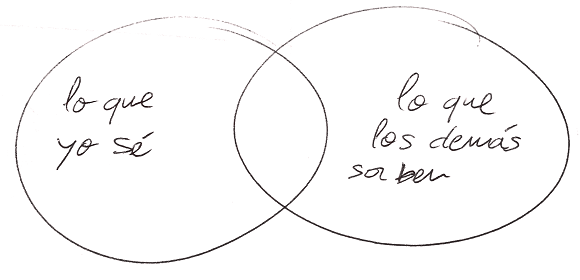 lo que
yo sé
lo que
los demás
saben